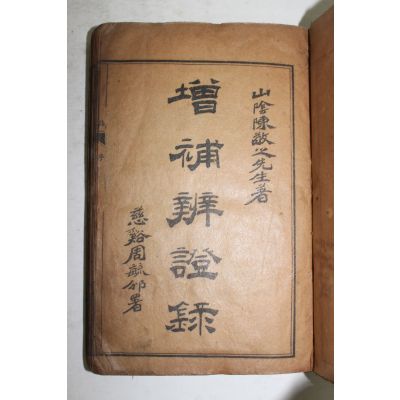 山陰陳敬之先生著
增補辨證錄
慈谿周毓邠署